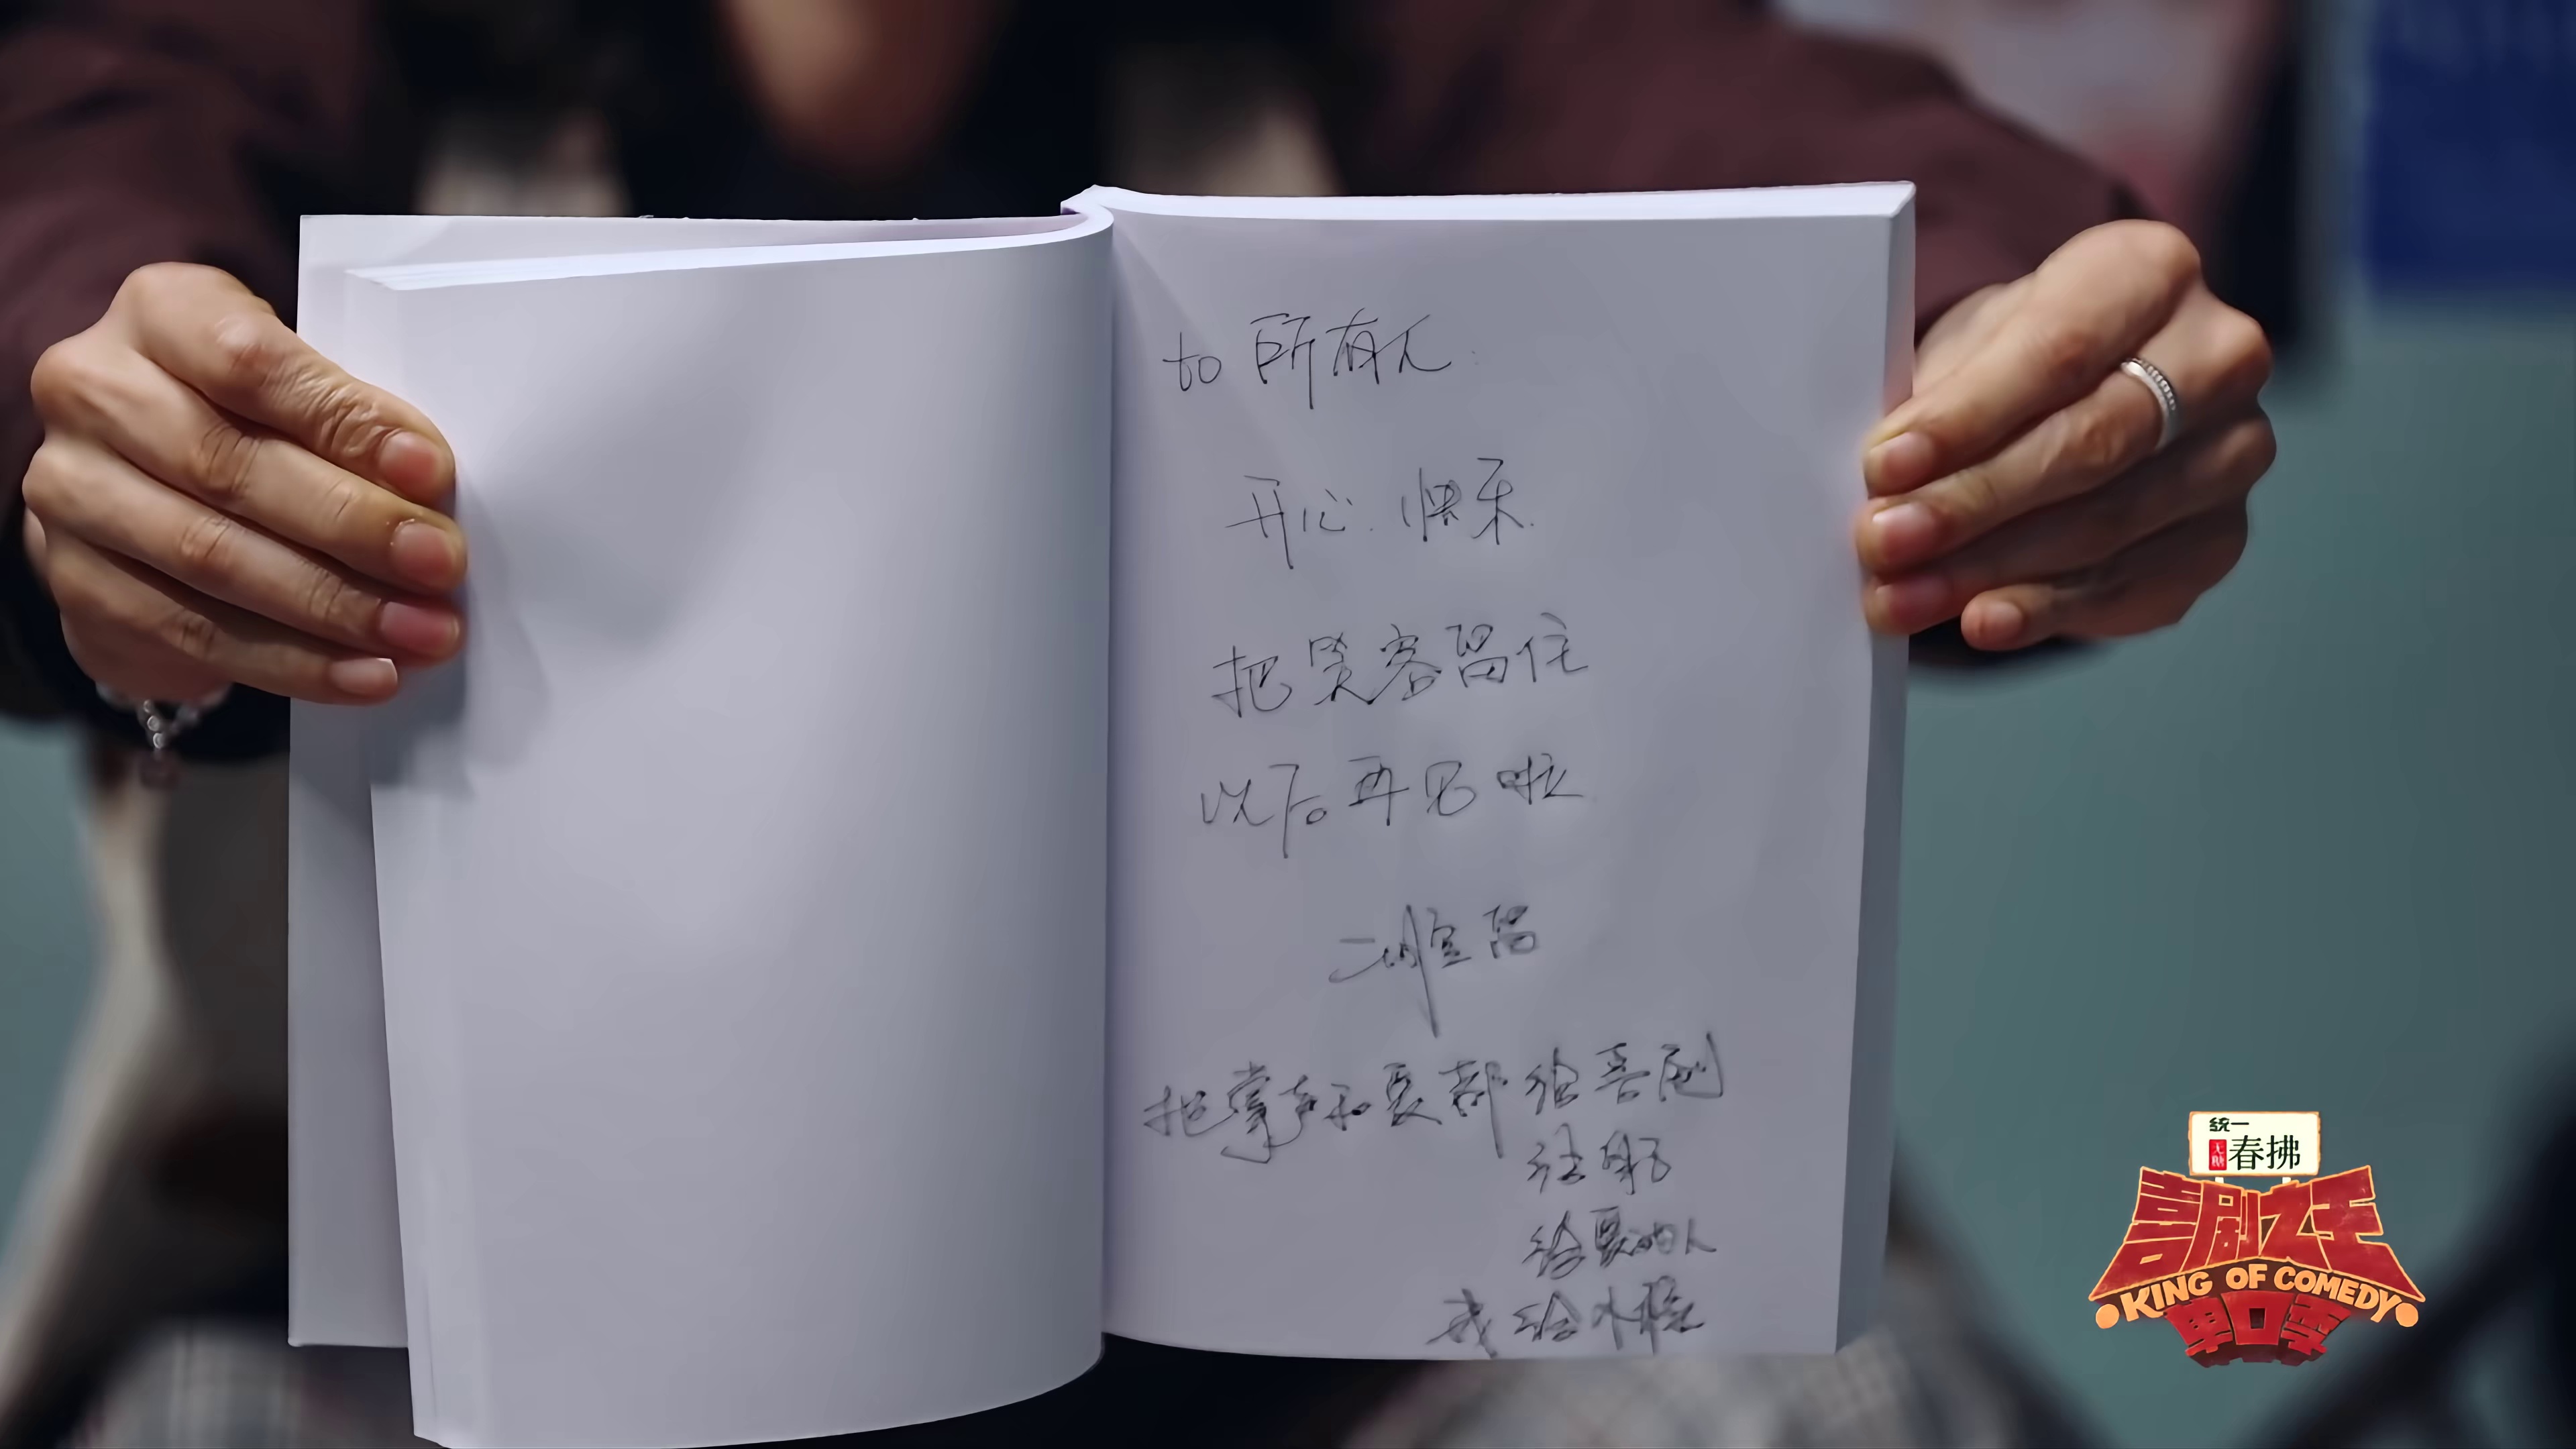 to 所有人
开心 快乐
把笑容留住
以后再见啦
把掌声和爱都给喜剧
给爱的人
统一
无糖
春拂
喜剧之王
KING OF COMEDY
单口季